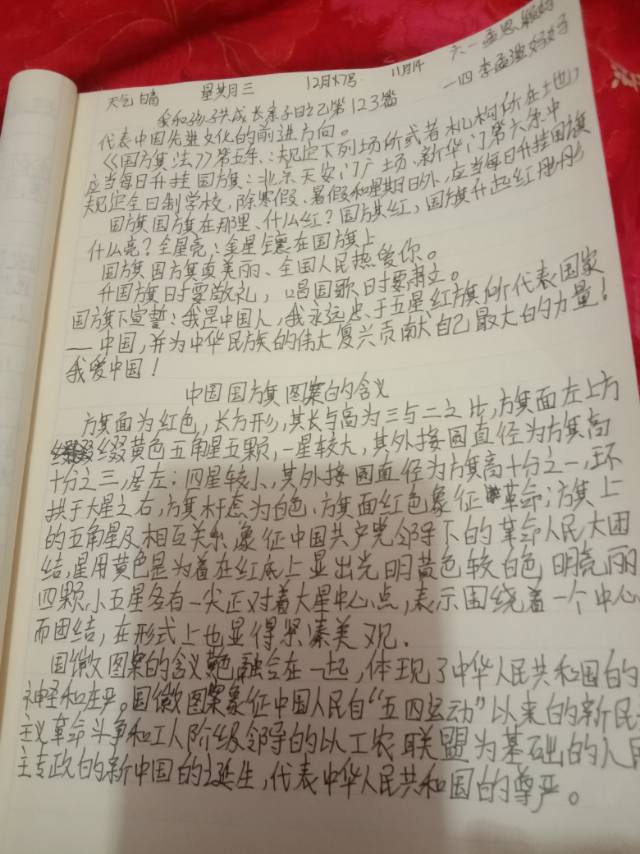 天气晴 星期三 12月17号 11月14 六一孟思颖妈
一四李孟潞妈妈
我和孩子共成长亲子日记第123篇
代表中国先进文化的前进方向。
《国旗法》第五条:规定下列场所或者机构所在地,
应当每日升挂国旗:北京天安门广场、新华门第六条中
规定全日制学校,除寒假、暑假和星期日外,应当每日升挂国旗
国旗国旗在那里、什么红?国旗红,国旗升起红彤彤
什么亮?金星亮:金星镶在国旗上
国旗国旗真美丽、全国人民热爱你。
升国旗时要敬礼,唱国歌时要肃立。
国旗下宣誓:我是中国人,我永远忠于五星红旗所代表国家
—中国,并为中华民族的伟大复兴贡献自己最大的力量!
我爱中国!
中国国旗图案的含义
旗面为红色,长方形,其长与高为三与二之比,旗面左上方
缀黄色五角星五颗,一星较大,其外接圆直径为旗高
十分之三,居左;四星较小,其外接圆直径为旗高十分之一,环
拱于大星之右,旗杆套为白色、旗面红色象征革命;旗上
的五角星及相互关系象征中国共产党邻导下的革命人民大团
结,星用黄色是为着在红底上显出光明黄色较白色明亮丽
四颗小五星各有一尖正对着大星中心点,表示围绕着一个中心
而团结,在形式上也显得紧凑美观.
国徽图案的含义融合在一起,体现了中华人民共和国的
神圣和庄严。国徽图案象征中国人民自“五四运动”以来的新民
主义革命斗争和工人阶级邻导的以工农联盟为基础的人民
主专政的新中国的诞生,代表中华人民共和国的尊严。